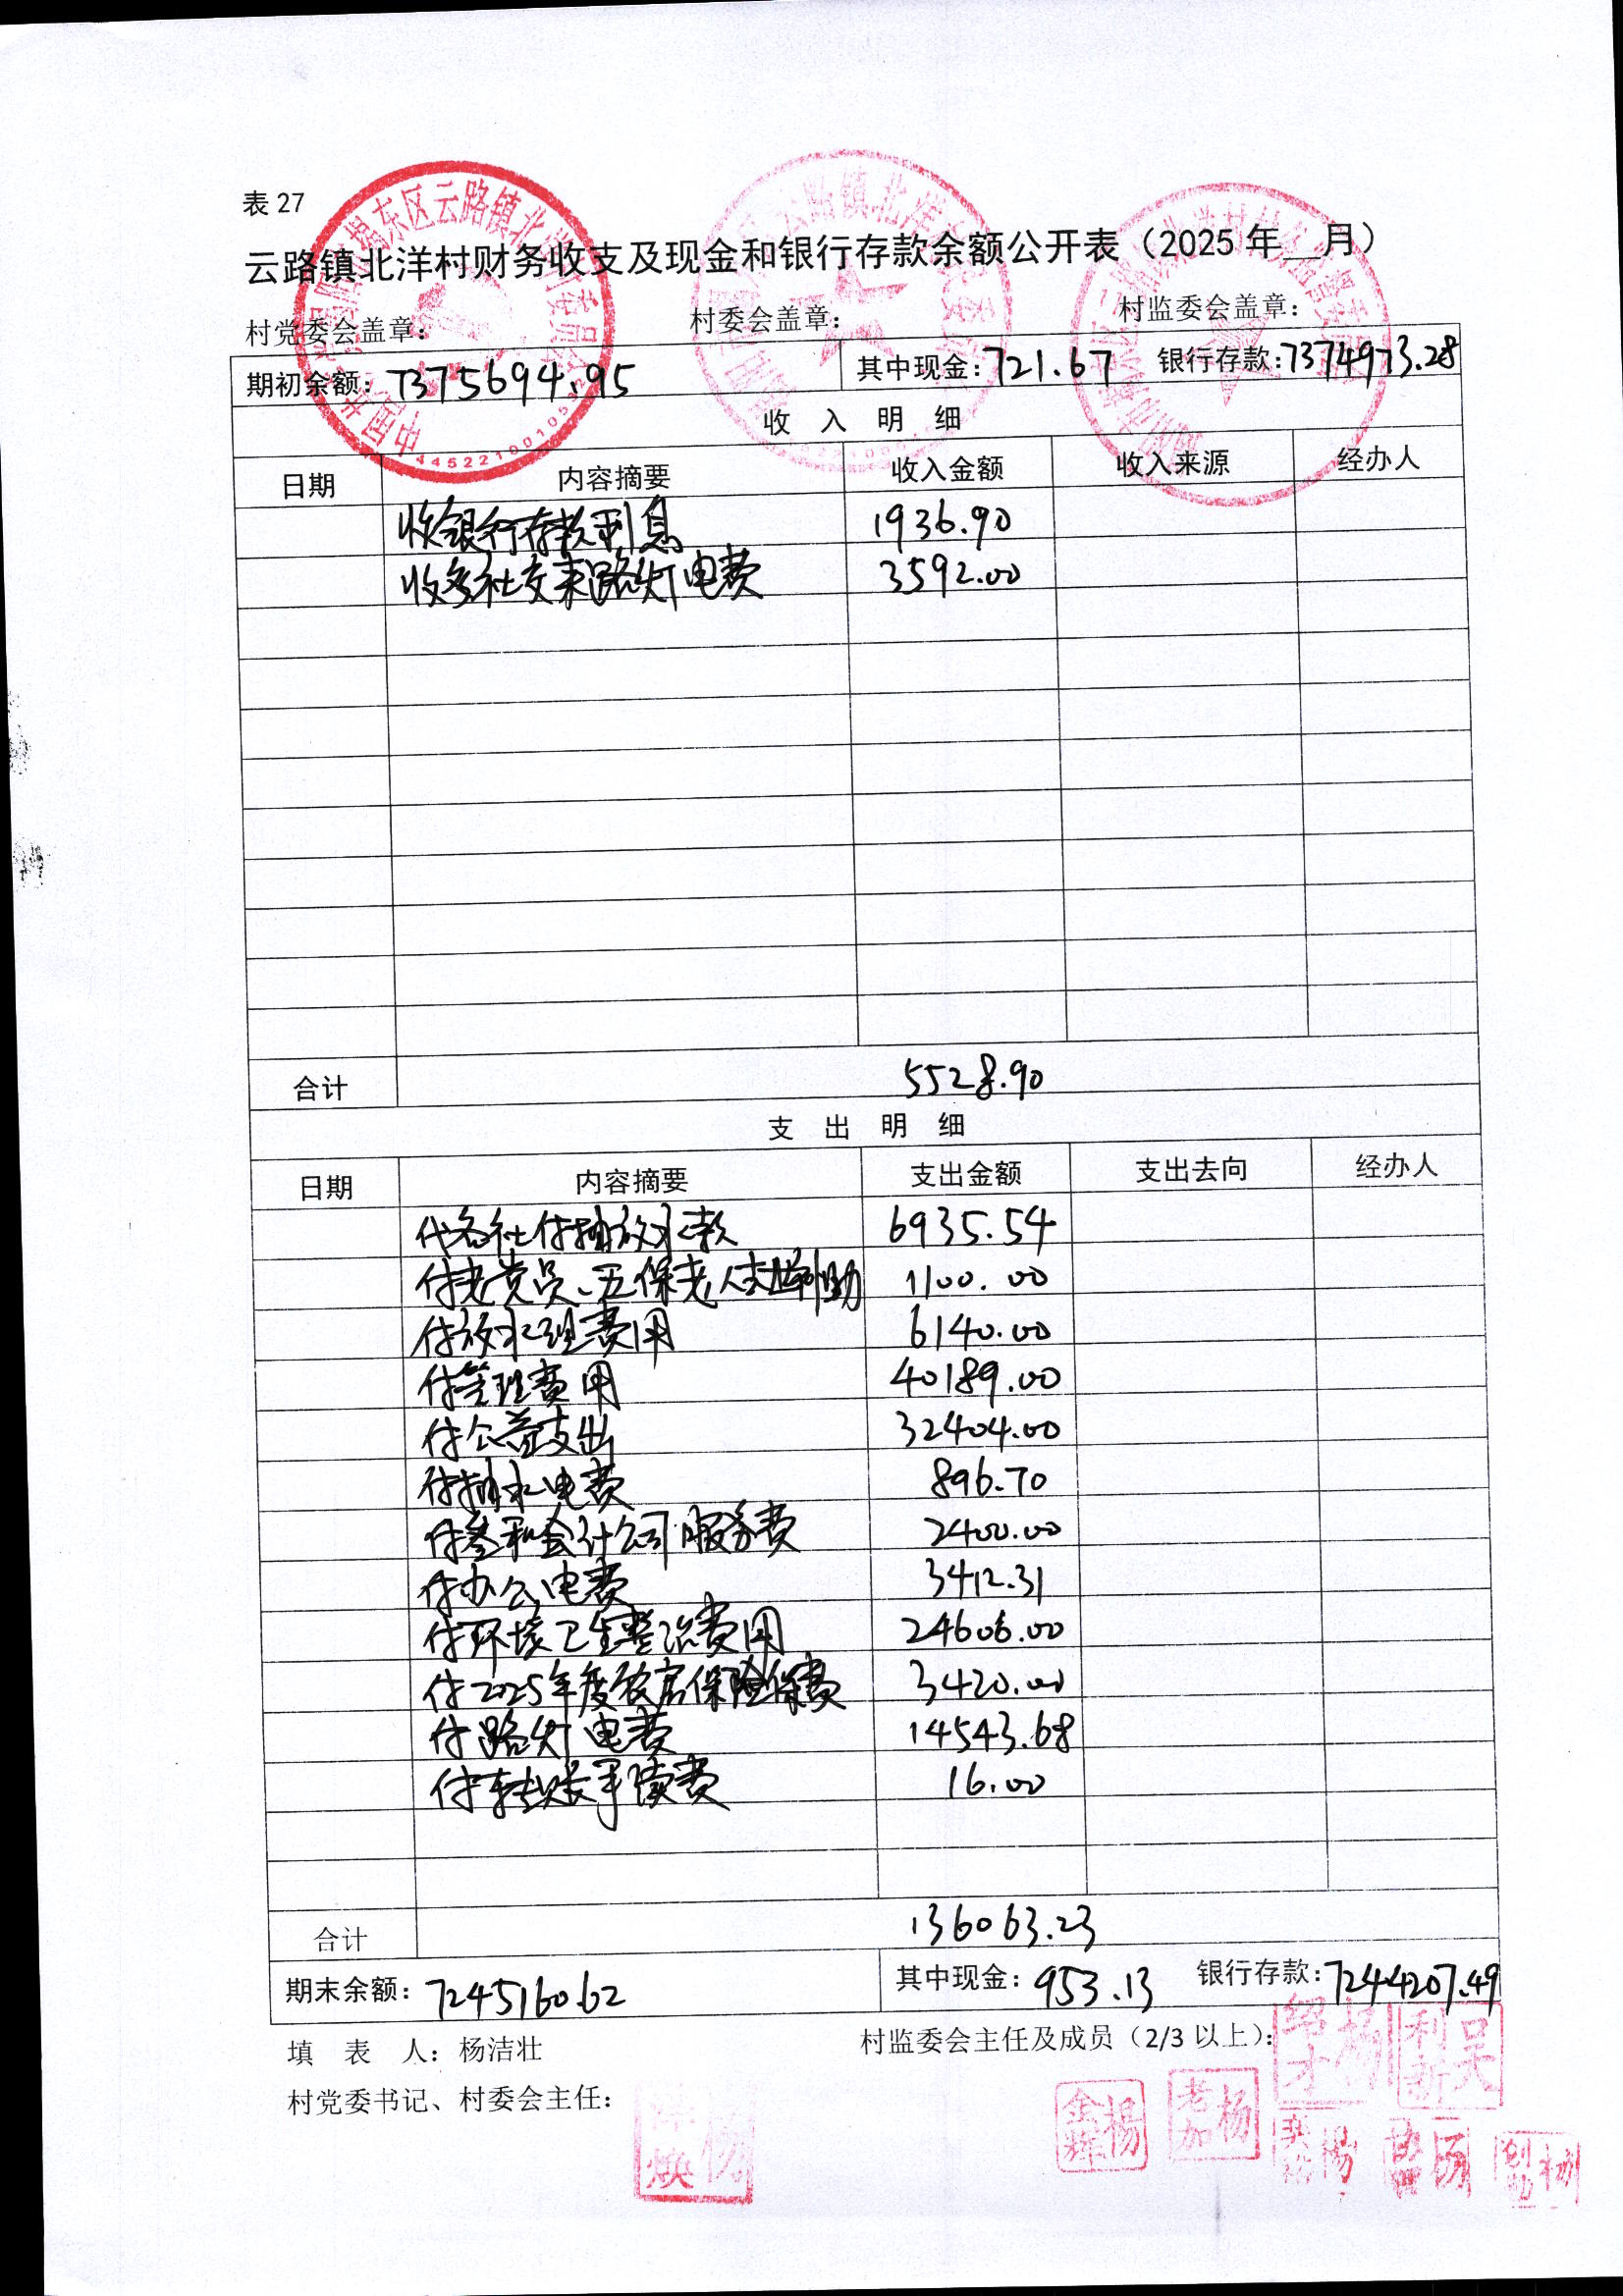 表 27
云路镇北洋村财务收支及现金和银行存款余额公开表（2025 年__月）
村党委会盖章： 村委会盖章： 村监委会盖章：
期初余额：7375694.95 其中现金：721.67 银行存款：7374973.28
收 入 明 细
日期 内容摘要 收入金额 收入来源 经办人
收银行存款利息 1936.90
收各社交来路灯电费 3592.00
合计 5528.90
支 出 明 细
日期 内容摘要 支出金额 支出去向 经办人
代各社付抽放水款 6935.54
付老党员、五保老人 1100.00
付放水 费用 6140.00
付管理费用 40189.00
付公益支出 32404.00
付抽水电费 896.70
付叁和会计公司服务费 2400.00
付办公电费 3412.31
付环境卫生整治费用 24606.00
付2025年度农房保险保费 3420.00
付路灯电费 14543.68
付转账手续费 16.00
合计 136063.23
期末余额：7245160.62 其中现金：953.13 银行存款：7244207.49
填 表 人：杨洁壮 村监委会主任及成员（2/3 以上）：
村党委书记、村委会主任：